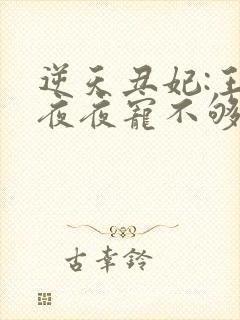 逆天丑妃:王
夜夜寵不够
古幸铃